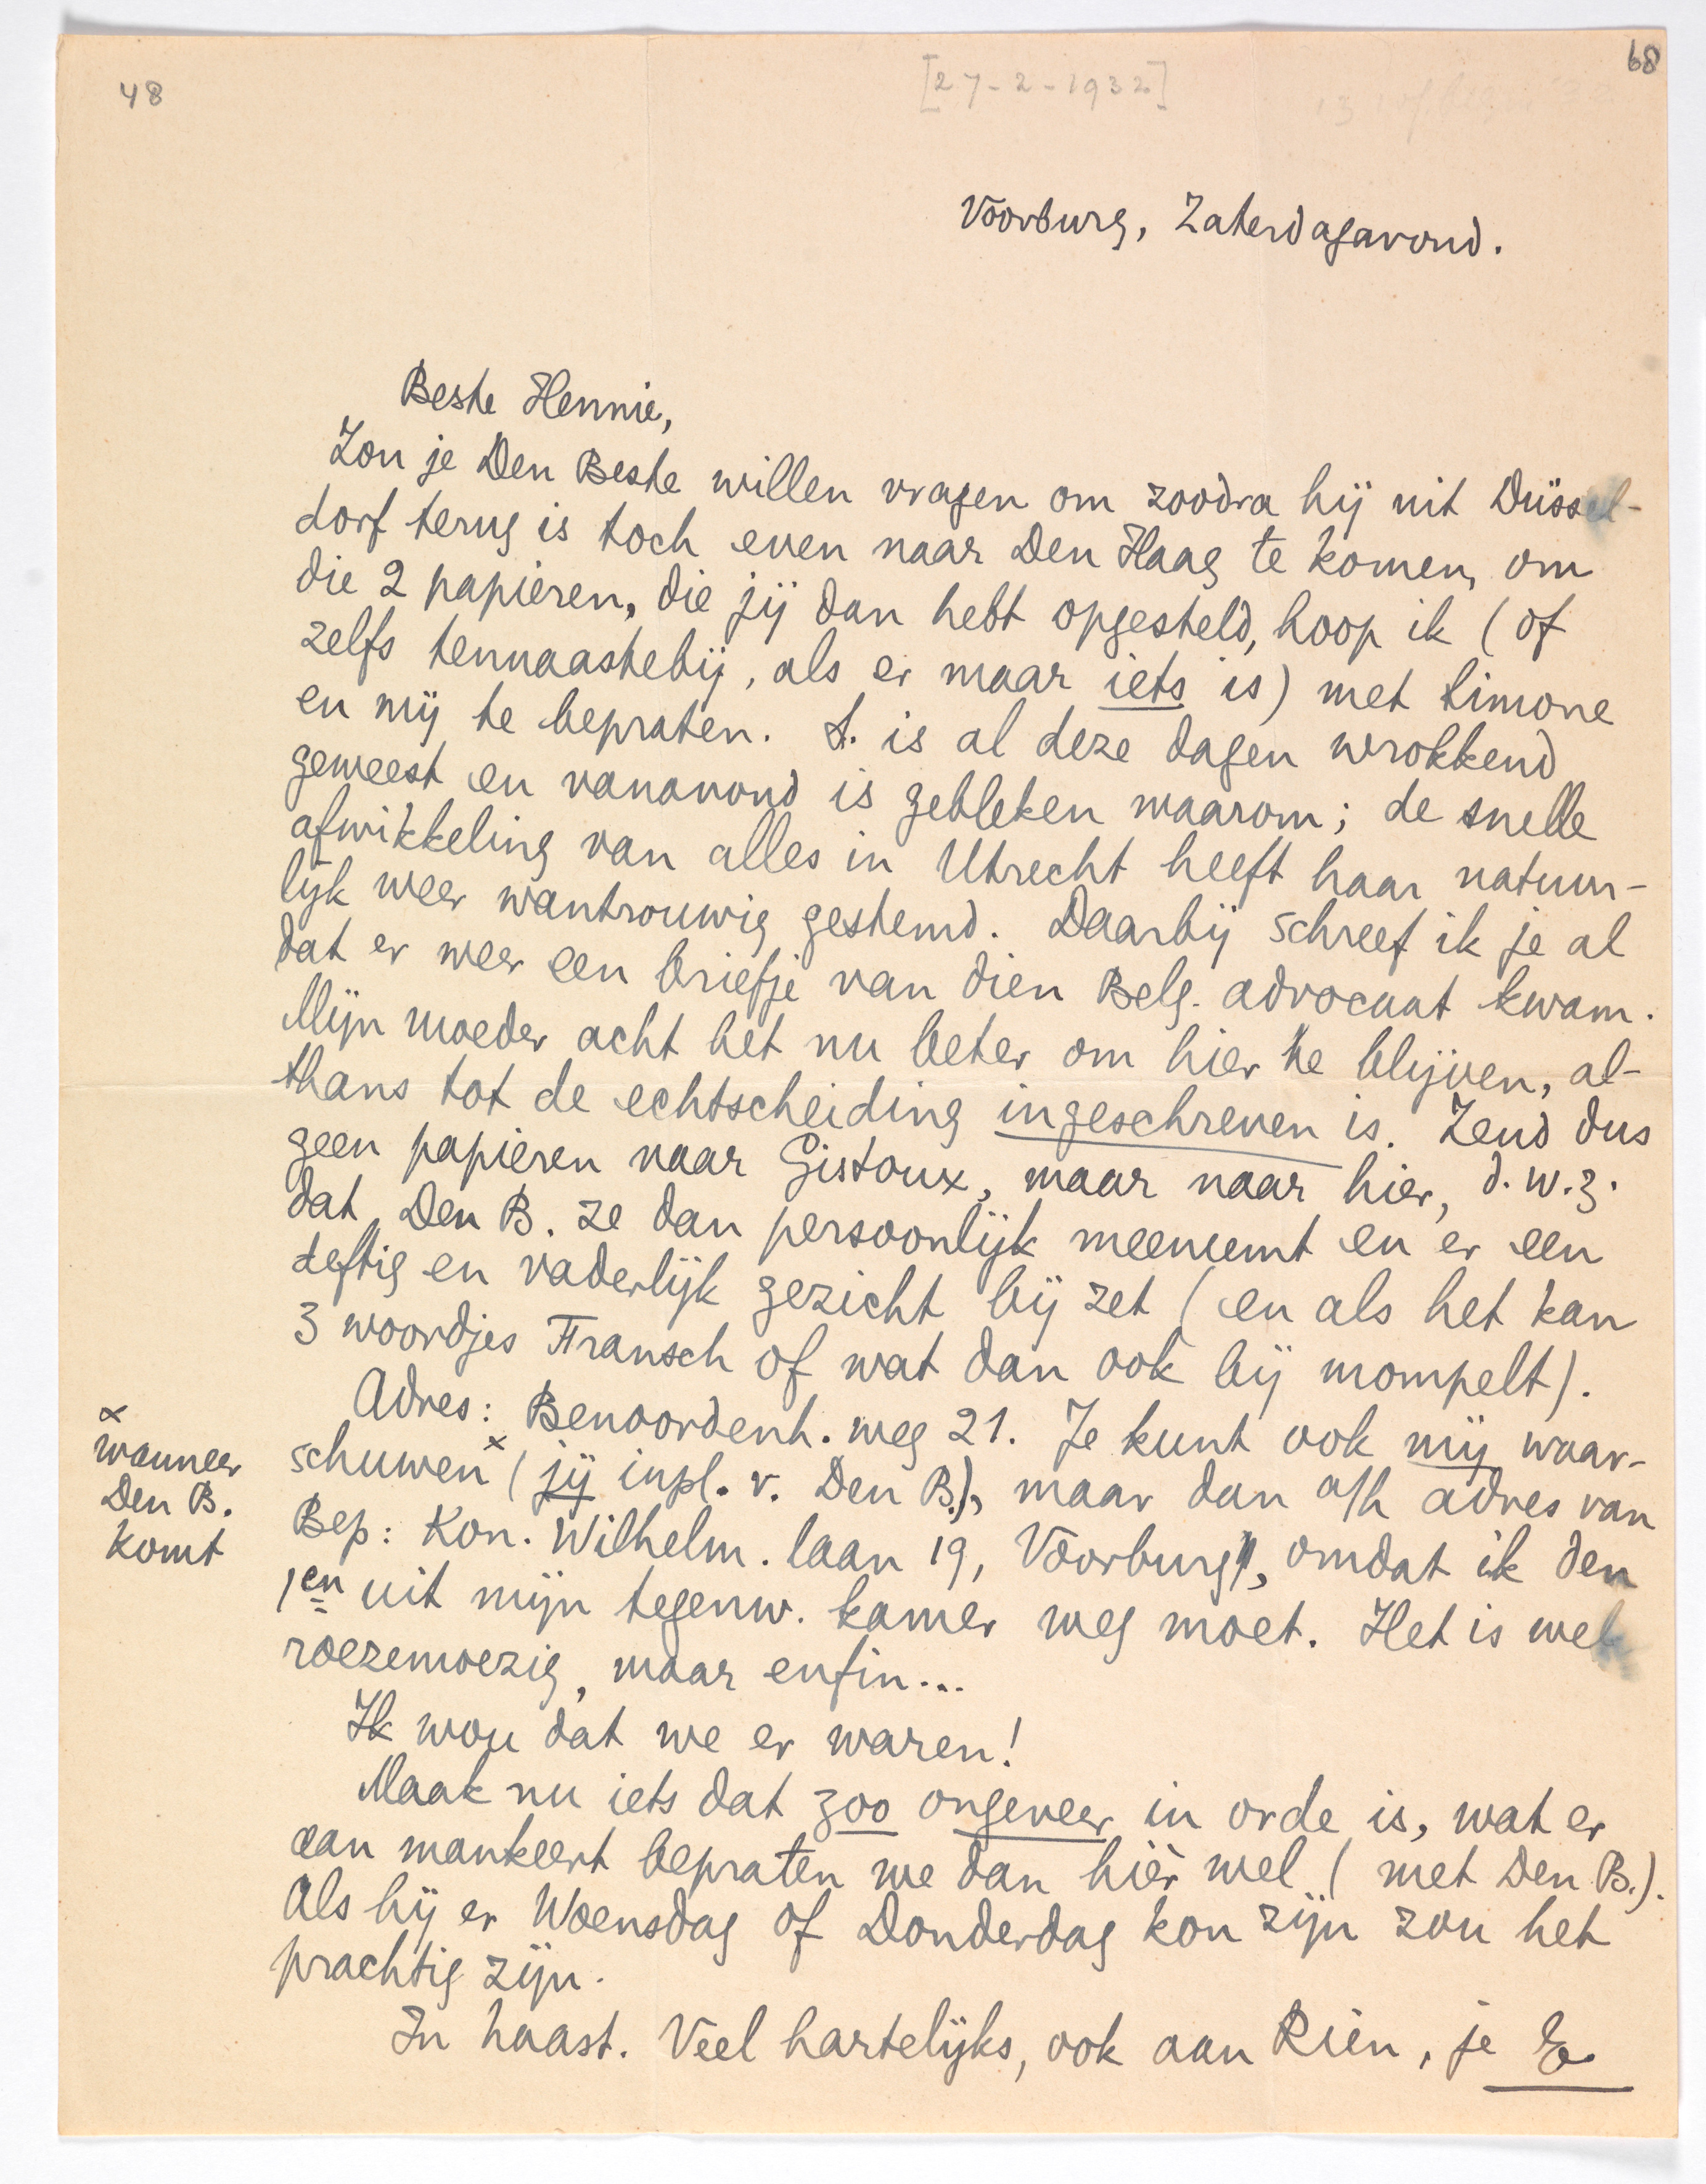 48
[27-2-1932]
68
Voorburg, Zaterdagavond.
Beste Hennie,
Zou je Den Beste willen vragen om zoodra hij uit Düssel-
dorf terug is toch even naar Den Haag te komen, om
die 2 papieren, die jij dan hebt opgesteld, hoop ik (of
zelfs tennaastebij, als er maar iets is) met Simone
en mij te bepraten. S. is al deze dagen wrokkend
geweest en vanavond is gebleken waarom; de snelle
afwikkeling van alles in Utrecht heeft haar natuur-
lijk weer wantrouwig gestemd. Daarbij schreef ik je al
dat er weer een briefje van dien Belg. advocaat kwam.
Mijn moeder acht het nu beter om hier te blijven, al-
thans tot de echtscheiding ingeschreven is. Zend dus
geen papieren naar Gistoux, maar naar hier, d.w.z.
dat Den B. ze dan persoonlijk meeneemt en er een
deftig en vaderlijk gezicht bij zet (en als het kan
3 woordjes Fransch of wat dan ook bij mompelt).
Adres: Benoordenh. weg 21. Je kunt ook mij waar-
schuwen x (jij inpl. v. Den B.), maar dan a/h adres van
x
wanneer
Den B.
komt
Bep: Kon. Wilhelm. laan 19, Voorburg, omdat ik den
1en uit mijn tegenw. kamer weg moet. Het is wel
roezemoezig, maar enfin...
Ik wou dat we er waren!
Maak nu iets dat zoo ongeveer in orde is, wat er
aan mankeert bepraten we dan hier wel (met Den B.).
Als hij er Woensdag of Donderdag kon zijn zou het
prachtig zijn.
In haast. Veel hartelijks, ook aan Rien, je E